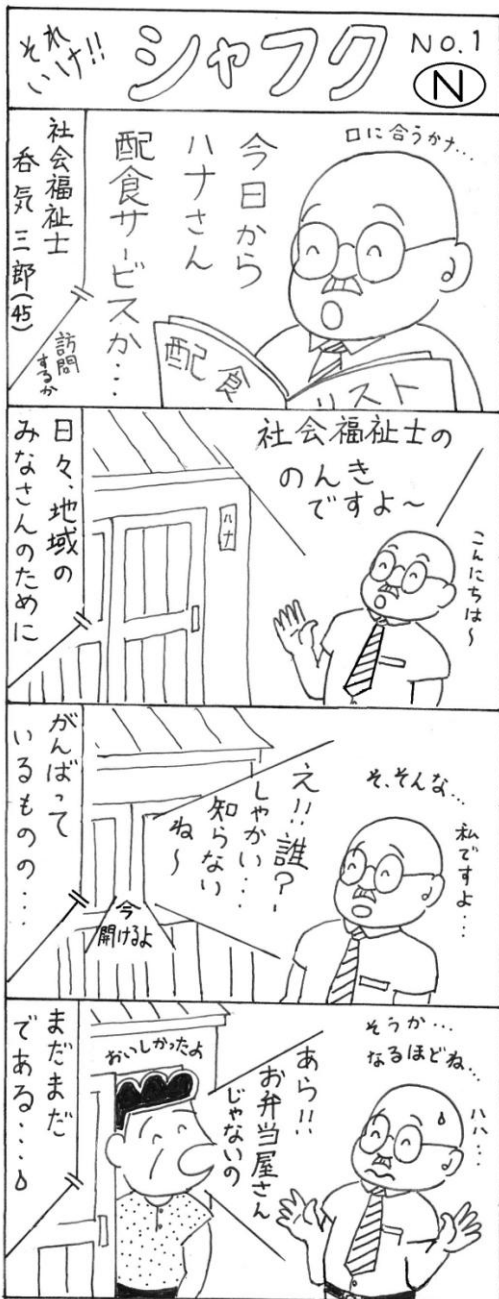 それ
いけ!!
シャフク
NO.1
N
口に合うかナ…
今日から
ハナさん
配食サービスか…
社会福祉士
呑気三郎(45)
訪問
するか
配食
リスト
社会福祉士の
のんき
ですよ~
こんにちは~
ハナ
日々、地域の
みなさんのために
そ、そんな…
私ですよ…
え!!誰?
しゃかい…
知らない
ね~
今
開けるよ
がんばって
いるものの…
そうか…
なるほどね…
ハハ…
あら!!
お弁当屋さん
じゃないの
おいしかったよ
まだまだ
である…。